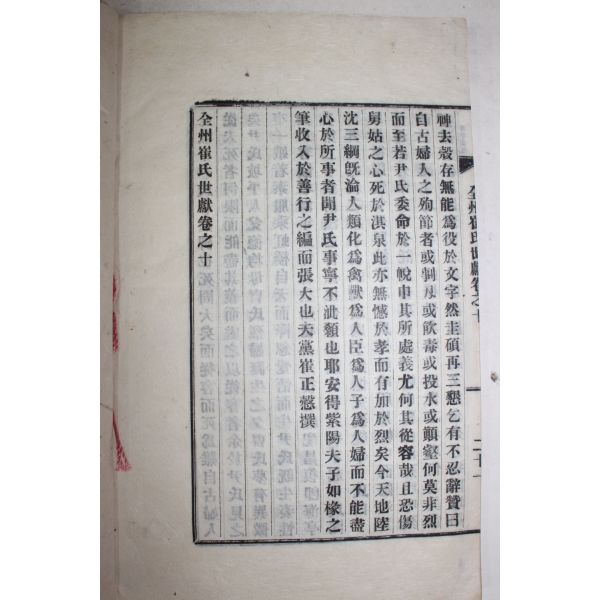 全州崔氏世獻卷之十
二十一
神去殼存無能爲役於文字然圭碩再三懇乞有不忍辭贊曰
自古婦人之殉節者或剄刎或飮毒或投水或顚壑何莫非烈
而至若尹氏委命於一帨申其所處義尤何其從容哉且恐傷
舅姑之心死於淇泉此亦無憾於孝而有加於烈矣今天地陸
沈三綱旣淪人類化爲禽獸爲人臣爲人子爲人婦而不能盡
心於所事者聞尹氏事寧不泚顙也耶安得紫陽夫子如椽之
筆收入於善行之編而張大也夫黨崔正愨撰
全州崔氏世獻卷之十